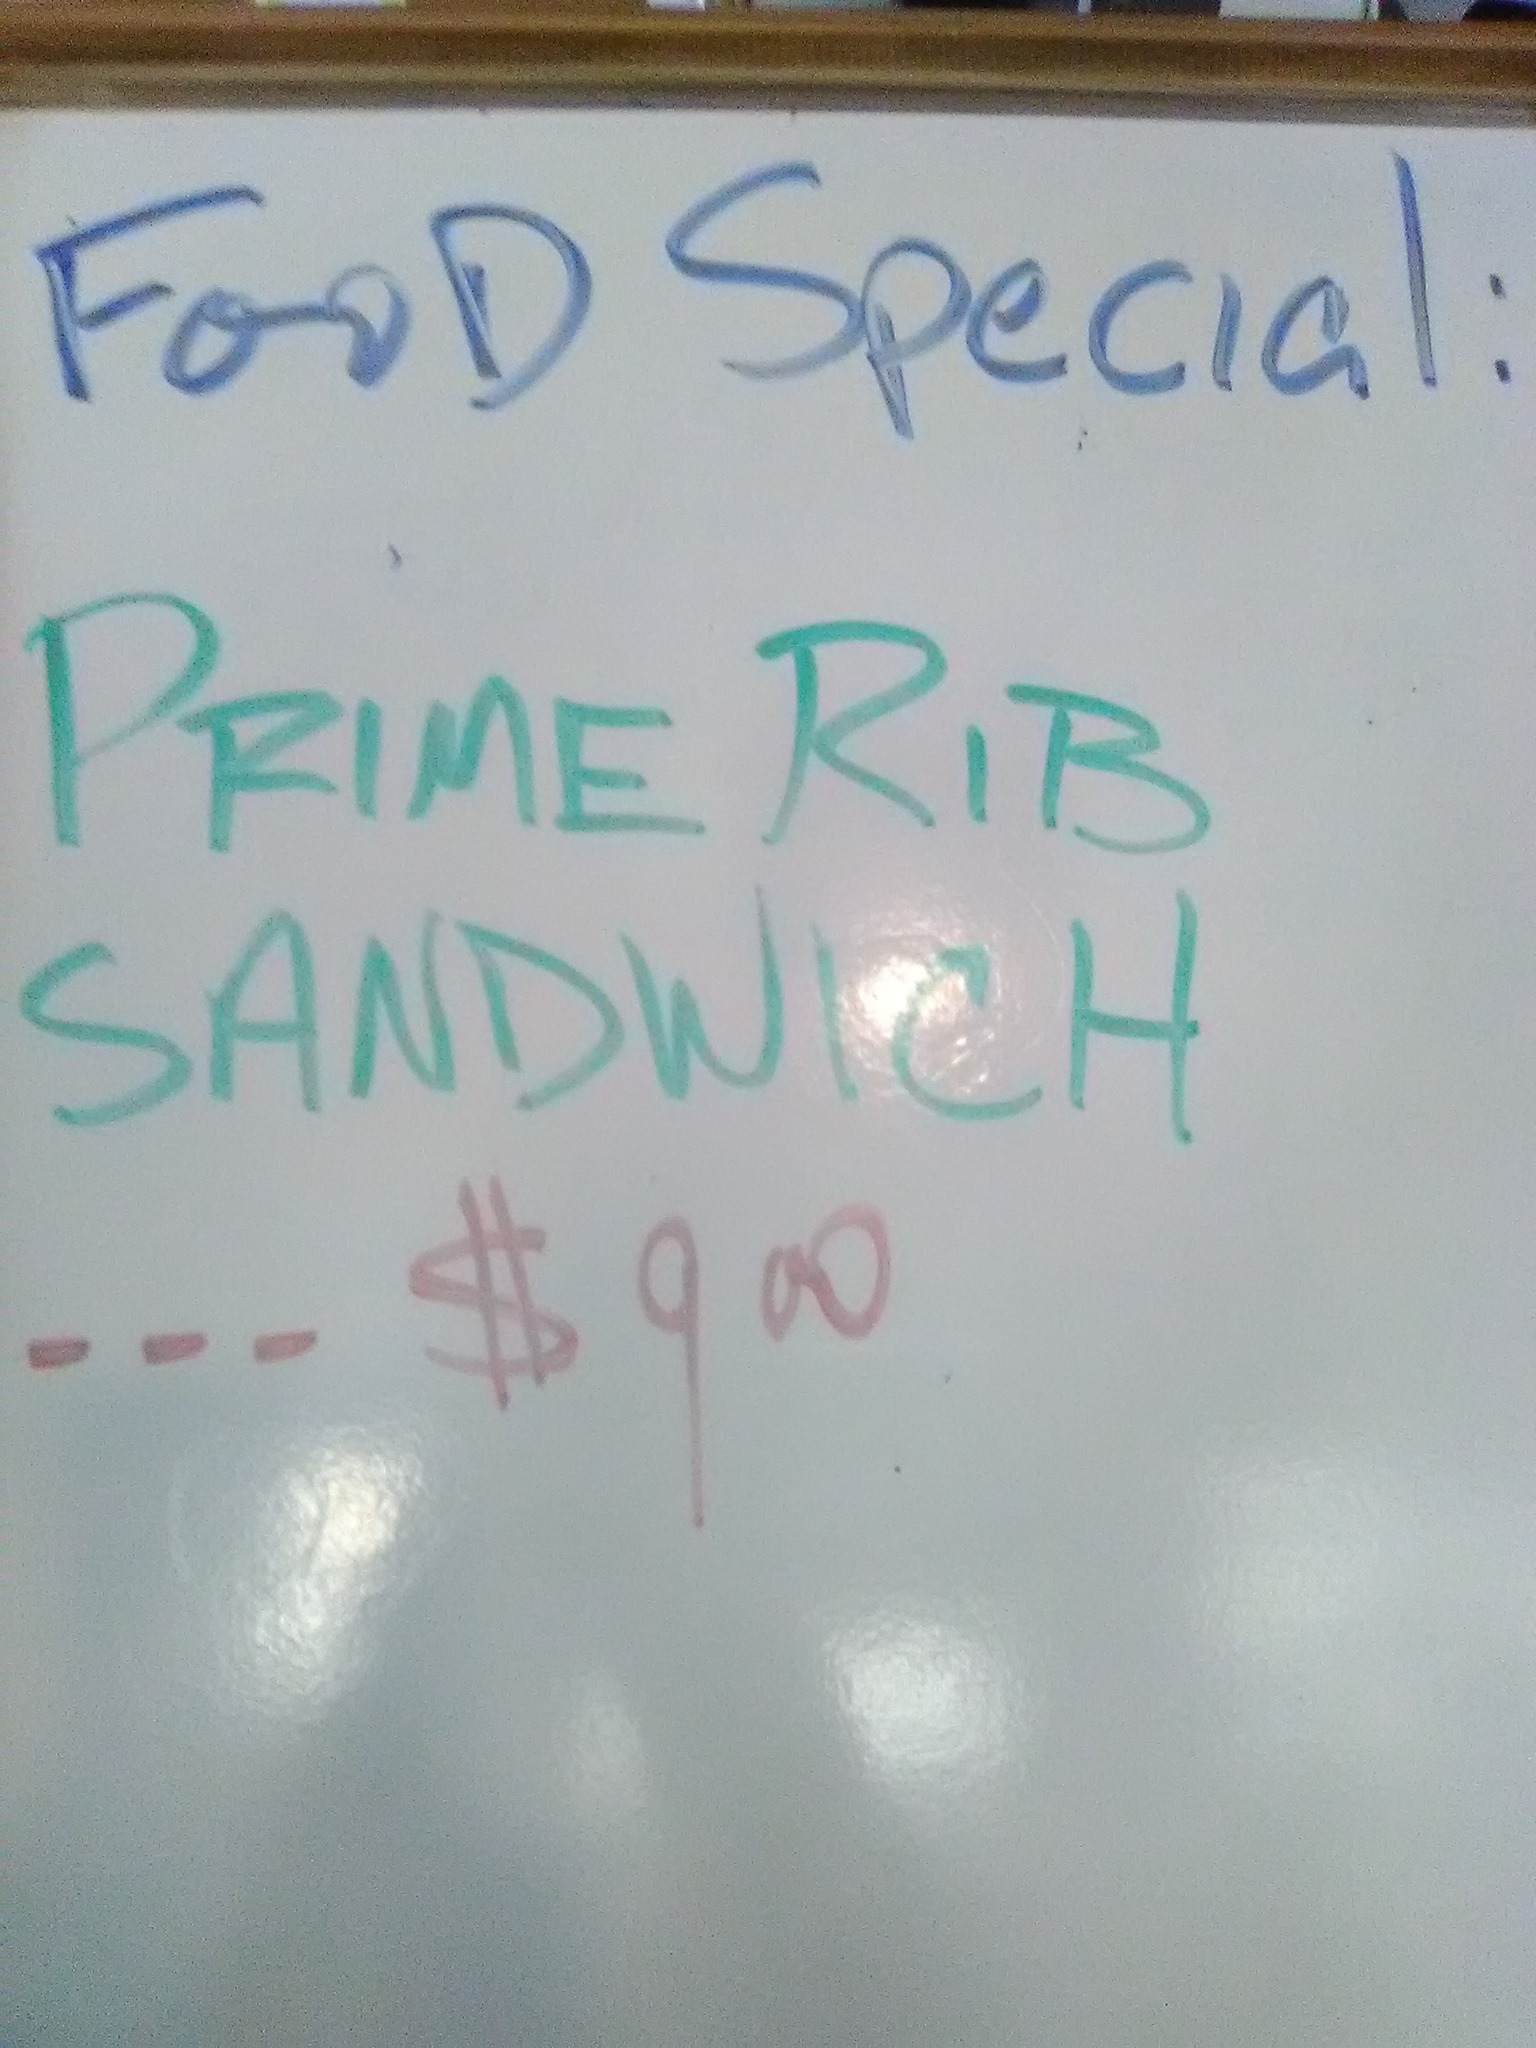 FooD Special:
PRIME RIB
SANDWICH
--- $9 00